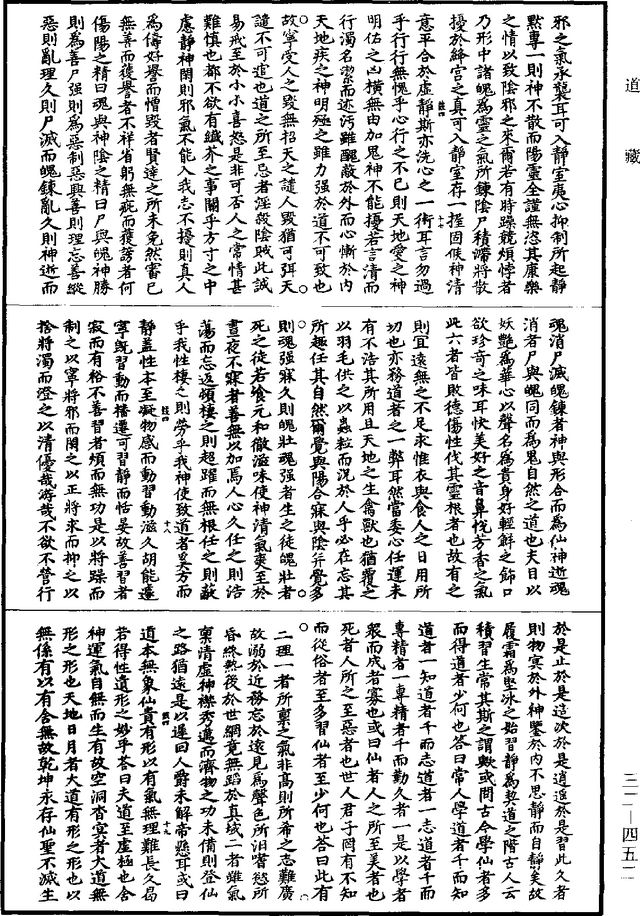 道藏
邪之氣承襲耳可入靜室夷心抑制所起靜
默專一則神不散而陽靈全謹無恣其康樂
之情以致陰邪之來爾若有時躁競煩悖者
乃形中諸魄為靈之氣所鍊陰尸積滯將散
擾於絳宮之真可入靜室存一握固候神清
意平合於虛靜斯亦洗心之一術耳言勿過
乎行行無愧乎心行之不已則天地愛之神
明佑之凶橫無由加鬼神不能擾若言清而
行濁名潔而迹污雖醜蔽於外而心慚於內
天地疾之神明殛之雖力強於道不可致也
故寧受人之毀無招天之譴人毀猶可弭天
譴不可逭也道之所至忌者淫殺陰賊此誡
易戒至於小小喜怒是非可否人之常情甚
難慎也都不欲有纖芥之事關乎方寸之中
慮靜神閑則邪氣不能入我志不擾則真人
為儔好譽而憎毀者賢達之所未免然審己
無善而獲譽者不祥省躬無疵而獲謗者何
傷陽之精曰魂與神陰之精曰尸與魄神勝
則為善尸強則為惡制惡興善則理忘善縱
惡則亂理久則尸滅而魄鍊亂久則神逝而
魂消尸滅魄鍊者神與形合而為仙神逝魂
消者尸與魄同而為鬼自然之道也夫目以
妖艷為華心以聲名為貴身好輕鮮之飾口
欲珍奇之味耳快美好之音鼻悅芳香之氣
此六者皆敗德傷性伐其靈根者也故有之
則宜遠無之不足求惟衣與食人之日用所
切也亦務道者之一弊耳然當委心任運未
有不浩其所用且天地之生禽獸也猶覆之
以羽毛供之以蟲粒而況於人乎必在忘其
所趣任其自然爾覺與陽合寐與陰并覺多
則魂強寐久則魄壯魂強者生之徒魄壯者
死之徒若餐元和徹滋味使神清氣爽至於
晝夜不寐者善無以加焉人心久任之則浩
蕩而忘返頓棲之則超躍而無根任之則蔽
乎我性棲之則勞乎我神使致道者奚方而
靜蓋性本至凝物感而動習動滋久胡能遽
寧既習動而播遷可習靜而恬晏故善習者
寂而有裕不善習者煩而無功是以將躁而
制之以寧將邪而閑之以正將求而抑之以
捨將濁而澄之以清優哉游哉不欲不營行
於是止於是造次於是逍遙於是習此久者
則物冥於外神鑒於內不思靜而自靜矣故
履霜為堅冰之始習靜為契道之階古人云
積習生常其斯之謂歟或問古今學仙者多
而得道者少何也答曰常人學道者千而知
道者一知道者千而志道者一志道者千而
專精者一專精者千而勤久者一是以學者
衆而成者寡也或曰仙者人之所至美者也
死者人所之至惡者也世人君子罔有不知
而從俗者至多習仙者至少何也答曰此有
二理一者所稟之氣非高則所希之志難廣
故溺於近務忘於遠見為聲色所汨嗜慾所
昏終熱後於世網竟無蹈於真域二者雖氣
稟清虛神襟秀邁而濟物之功未備則登仙
之路猶遠是以遲回人爵未解帝懸耳或曰
道本無象仙貴有形以有氣無理難長久曷
若得性遺形之妙乎答曰夫道至虛極也含
神運氣自無而生有故空洞杳冥者大道無
形之形也天地日月者大道有形之形也以
無係有以有含無故乾坤永存仙聖不滅生
三二—四五二